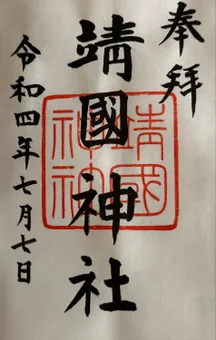 奉拝
靖國神社
靖國
神社
令和四年七月七日